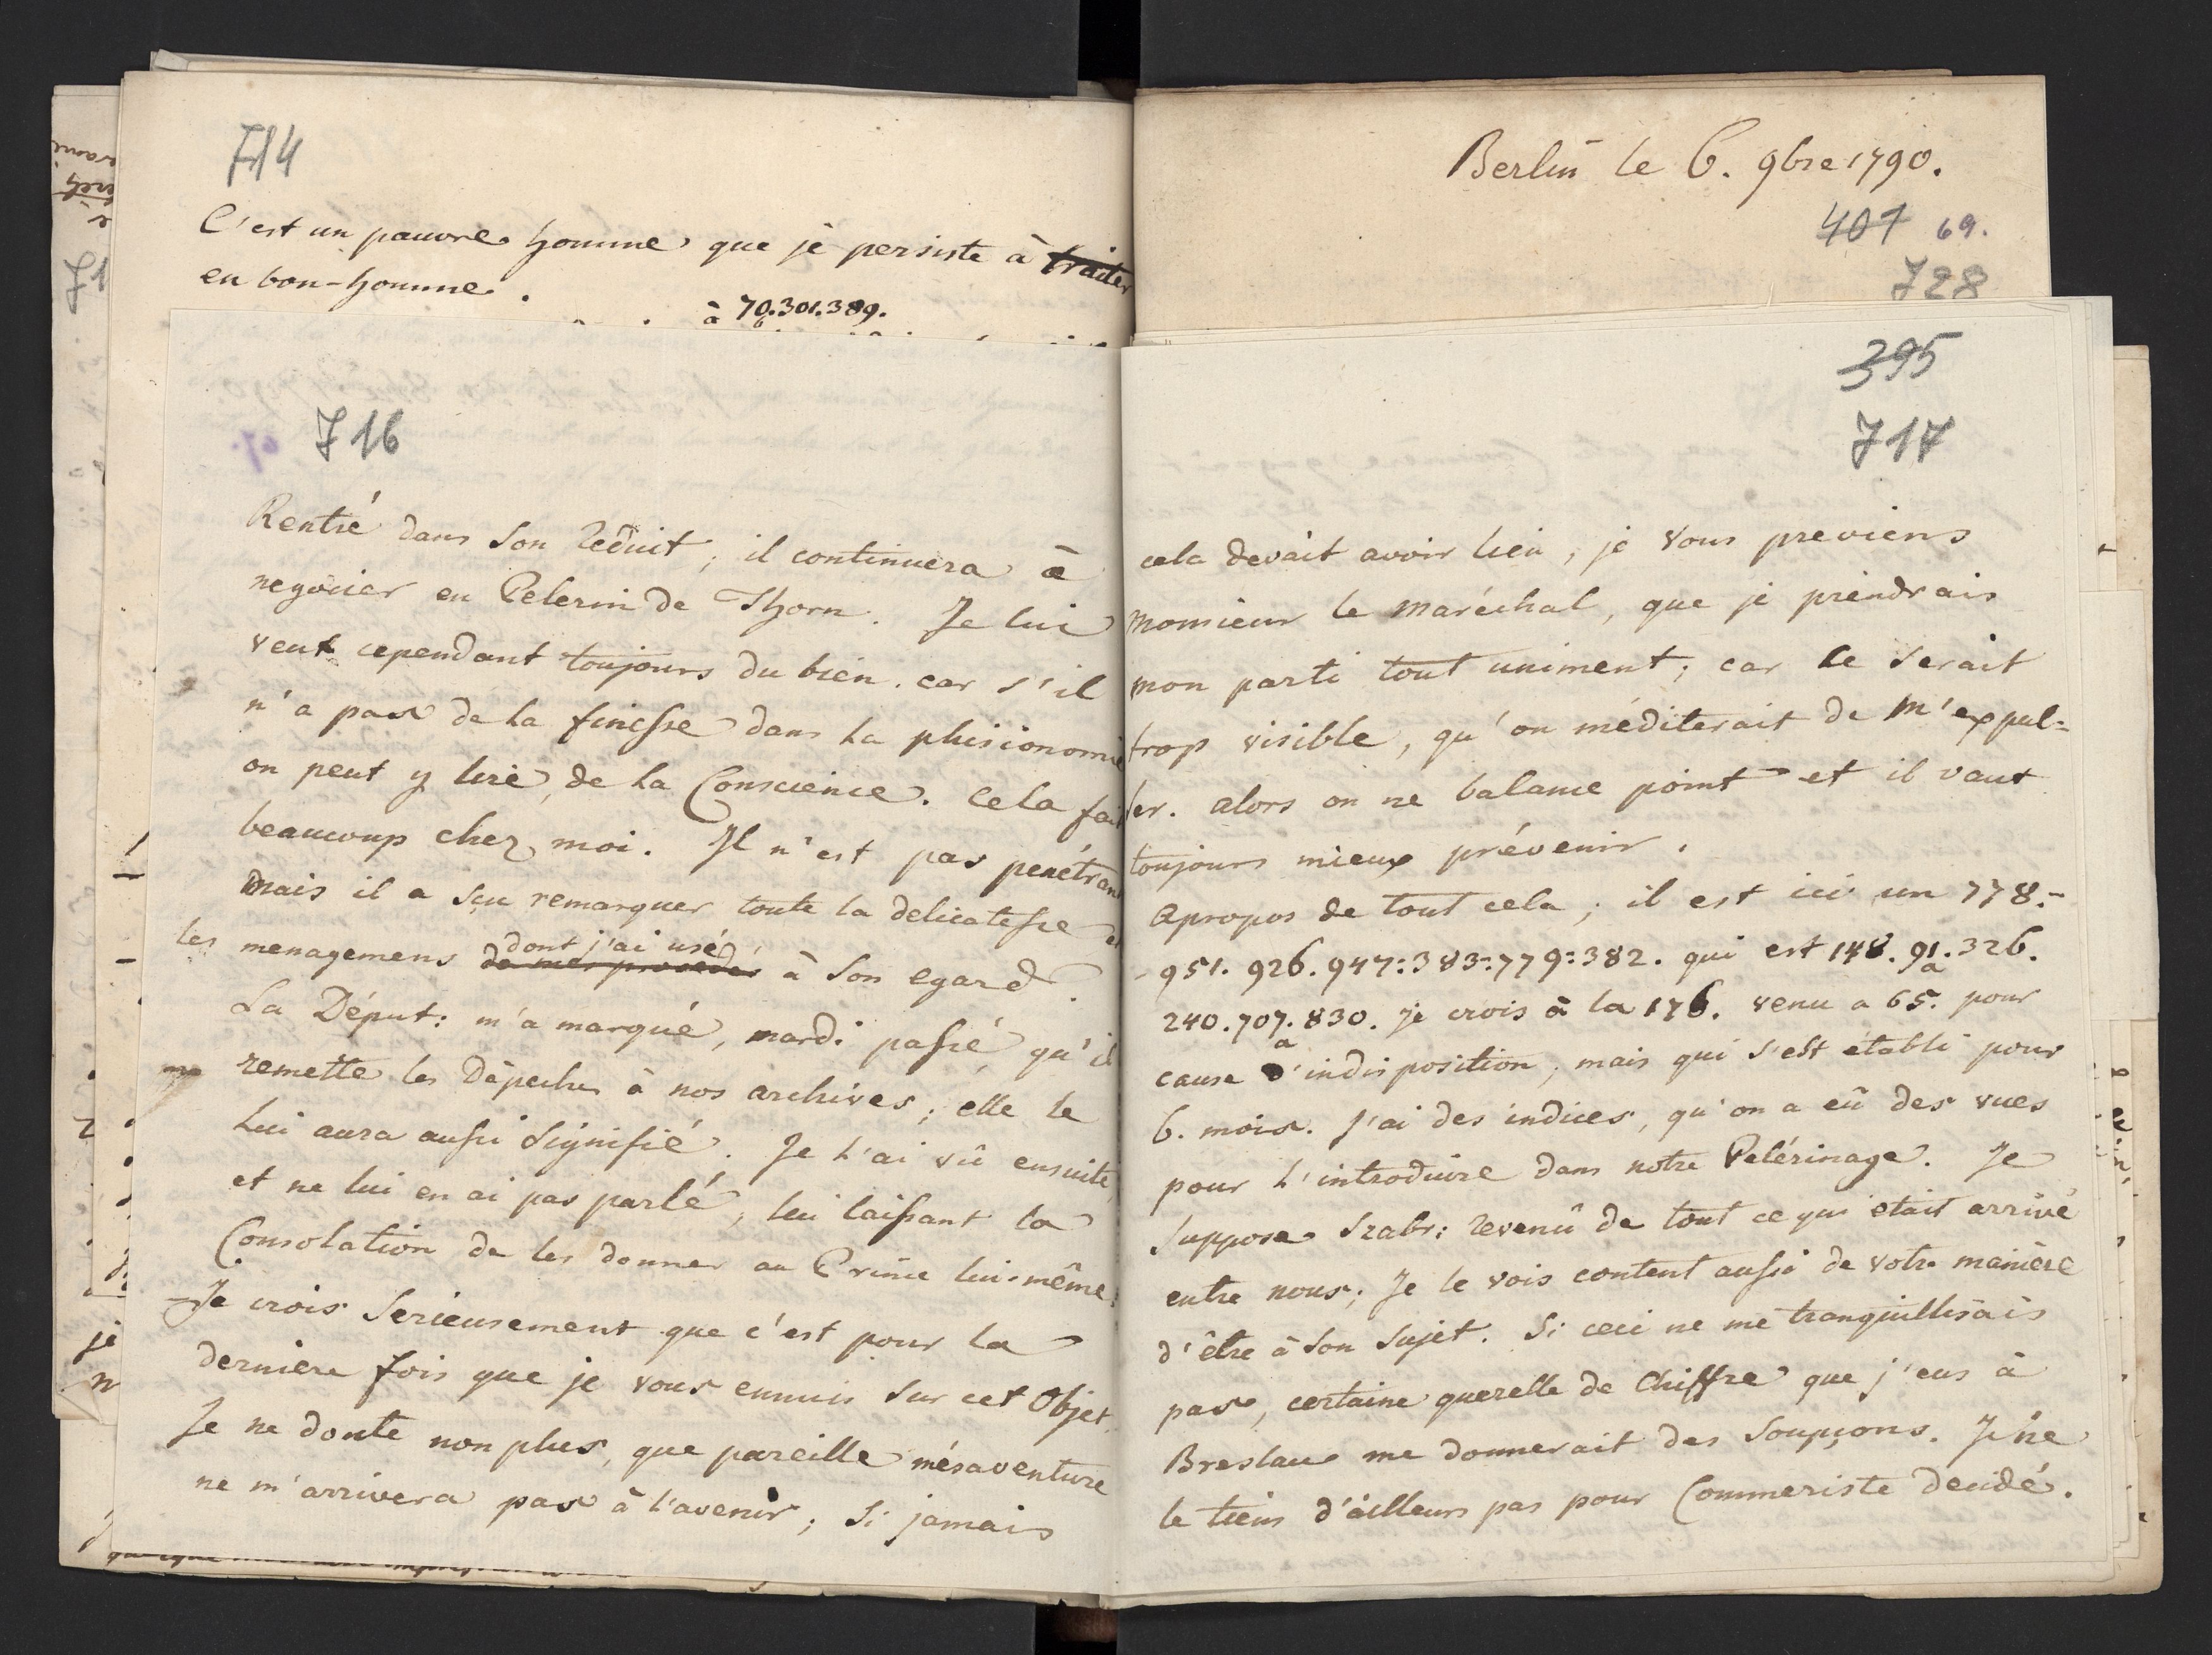 714
C'est un pauvre homme que je persiste à traiter
en bon-homme.
à 70.301.389.
Berlin le 6. 9bre 1790.
407 69.
728
716
Rentré dans son reduit, il continuera à
negocier en Pelerin de Thorn. Je lui
veux cependant toujours du bien. car s'il
n'a pas de la finesse dans la phisionomie
on peut y lire, de la Conscience. Cela fait
beaucoup chez moi. Il n'est pas penétrant
Mais il a sçu remarquer toute la delicatesse et
les menagemens de mes procedés dont j'ai usé à son egard.
La Déput: m'a marqué, mardi passé qu'il
remette les Dépeches à nos archives; elle le
lui aura aussi signifié. Je l'ai vû ensuite,
et ne lui en ai pas parlé, lui laissant la
Consolation de les donner au Prime lui-même.
Je crois serieusement que c'est pour la
derniere fois que je vous ennuis sur cet Objet.
Je ne doute non plus, que pareille mésaventure
ne m'arrivera pas à l'avenir; Si jamais
395
717
cela devait avoir lieu, je vous previens
Monsieur le Maréchal, que je prendrais
mon parti tout uniment; car ce serait
trop visible, qu'on méditerait de m'expul=
ser. alors on ne balance point et il vaut
toujours mieux prévenir.
Apropos de tout cela; il est ici un 778.-
951. 926. 947:383:779:382. qui est 148. 91. 326.
a
240.707.830. je crois à la 176. venu a 65. pour
a
cause d'indisposition, mais qui s'est établi pour
6. mois. J'ai des indices, qu'on a eû des vues
pour l'introduire dans notre Pelérinage. Je
suppose Szabr: revenû de tout ce qui etait arrivé
entre nous; Je le vois content aussi de votre manière
d'être à son sujet. Si ceci ne me tranquillisais
pas, certaine querelle de Chiffre que j'eus à
Breslau me donnerait des soupçons. Je ne
le tiens d'ailleurs pas pour Commeriste decidé.
je